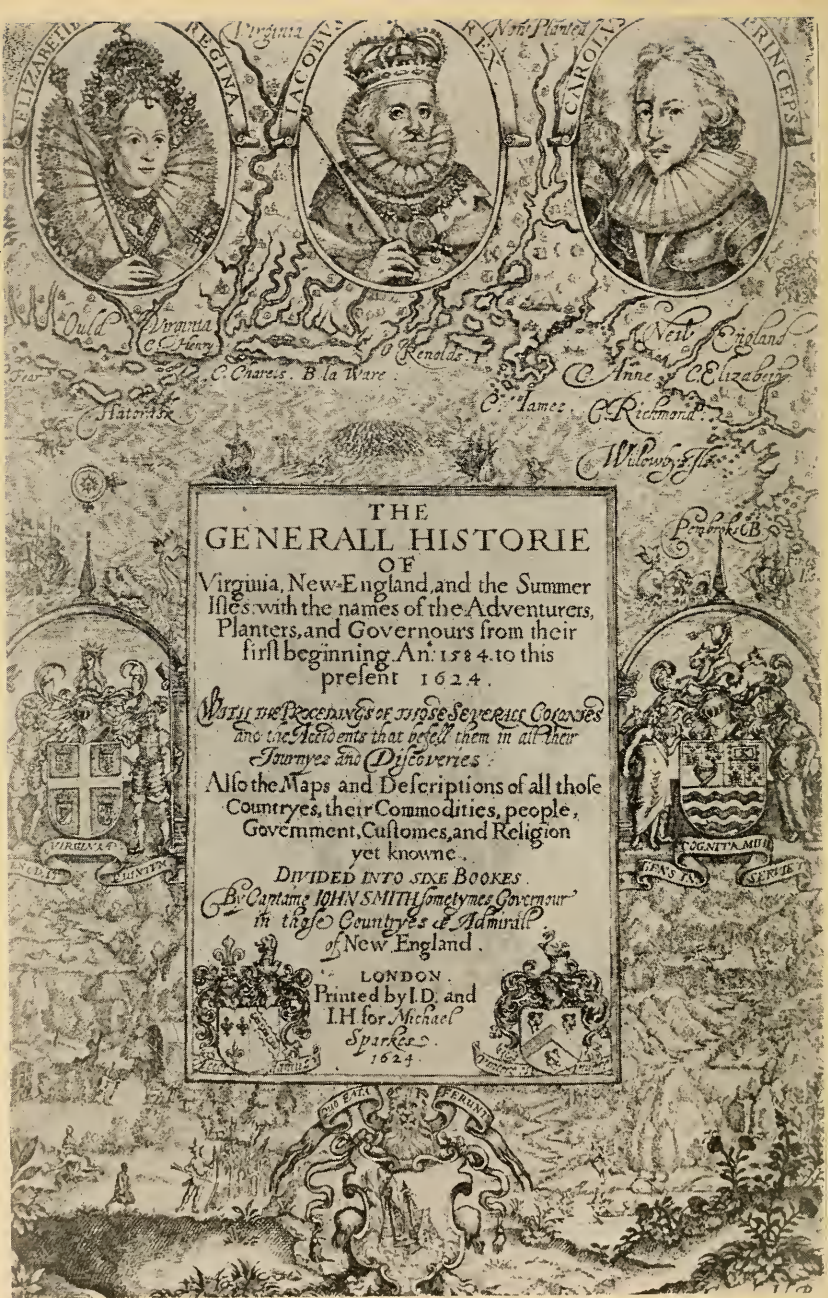 ELIZABETH REGINA
IACOBVS REX
CAROLVS PRINCEPS
Virginia
Now Planted
Ould Virginia
C. Henry
C. Charels. B la Ware
Renolds.
New England
C. Anne. C. Elizabeth
C. Iames. C. Richmond
Willowbys Iles
Fear
C Hatorask
Pembroks B
THE
GENERALL HISTORIE
OF
Virginia, New-England, and the Summer
Isles: with the names of the Adventurers,
Planters, and Governours from their
first beginning. An: 1584. to this
present 1624.
WITH THE PROCEDINGS OF THOSE SEVERALL COLONIES
and the Accidents that befell them in all their
Journyes and Discoveries.
Also the Maps and Descriptions of all those
Countryes, their Commodities, people,
Government, Customes, and Religion
yet knowne.
DIVIDED INTO SIXE BOOKES.
By Captaine IOHN SMITH sometymes Governour
in those Countryes & Admirall
of New England.
LONDON.
Printed by I.D. and
I.H. for Michael
Sparkes.
1624.
VIRGINIA
QUINTUM
GENS IN COGNITA MIHI SERVIET
QUO FATA FERUNT